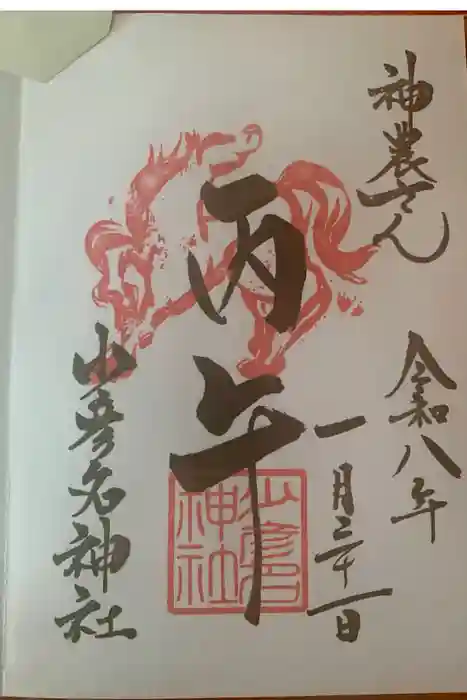 神農さん
令和八年
一月三十一日
丙午
少彦名神社
少彦名
神社